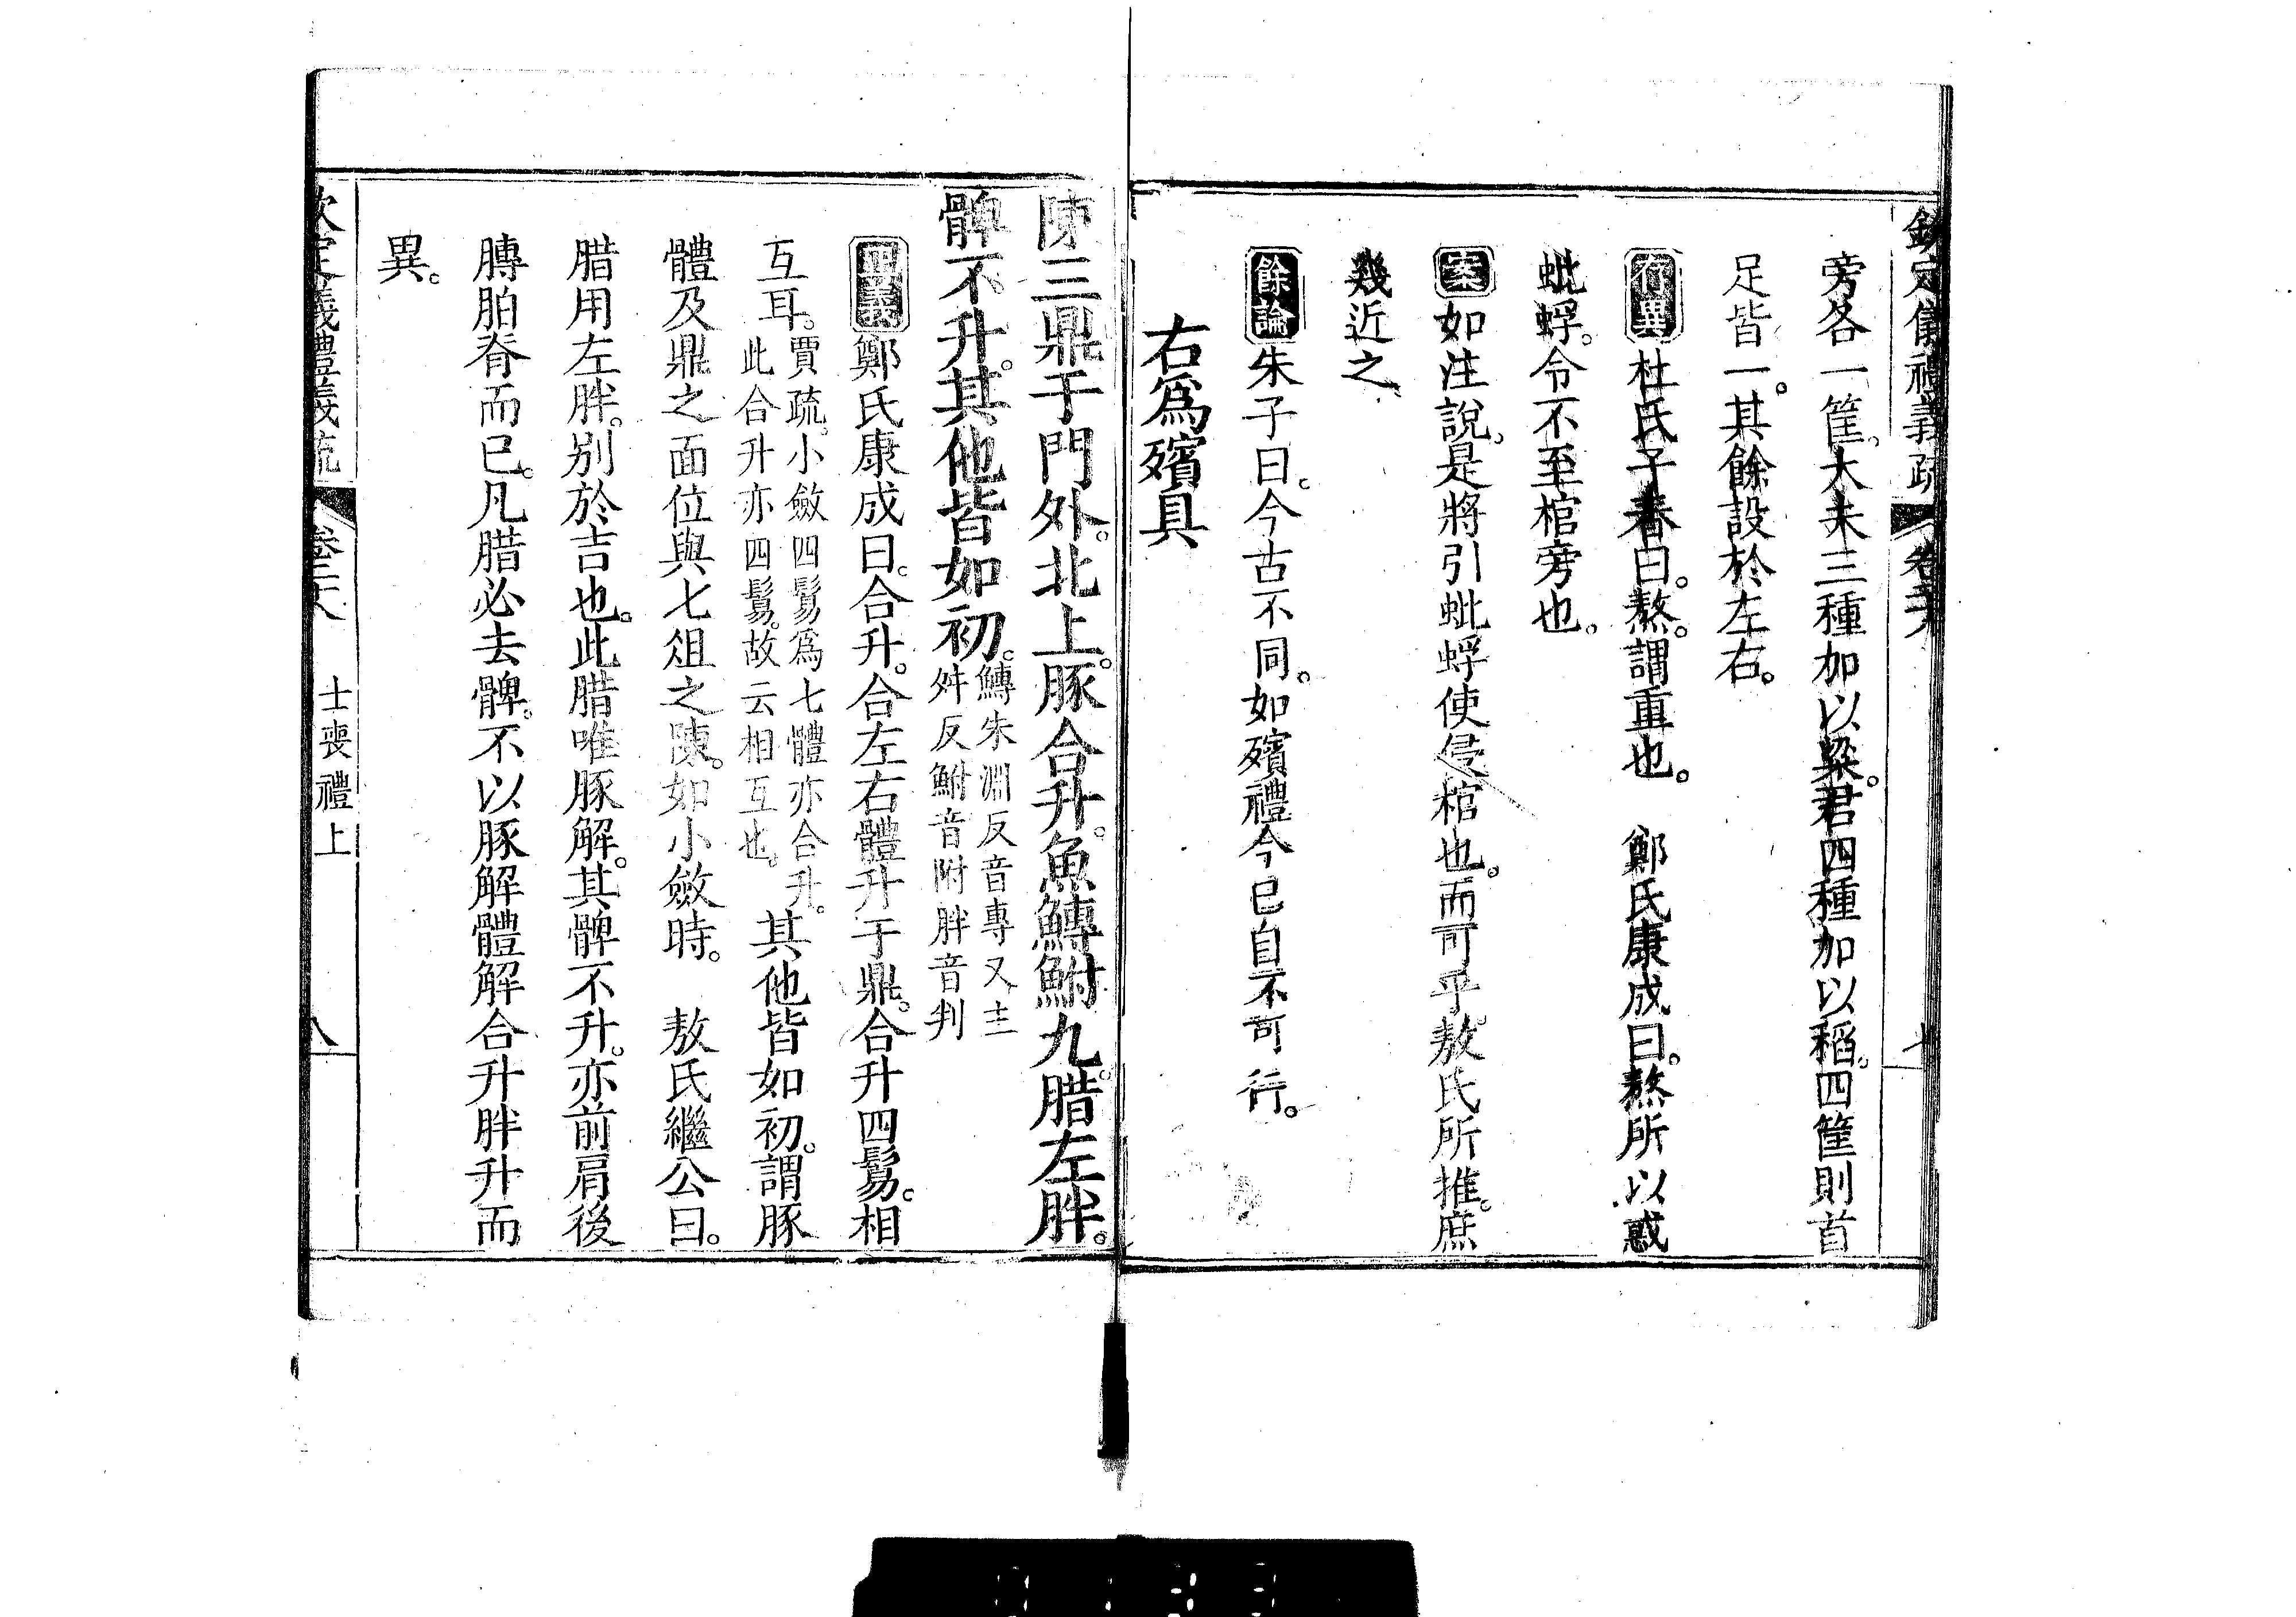 欽定儀禮義疏 卷二十八 七
旁各一筐。大夫三種加以粱。君四種加以稻。四筐則首
足皆一。其餘設於左右。
存異 杜氏子春曰。熬。謂重也。 鄭氏康成曰。熬所以惑
蚍蜉。令不至棺旁也。
案 如注說。是將引蚍蜉使侵棺也。而可乎。敖氏所推。庶
幾近之
餘論 朱子曰。今古不同。如殯禮今已自不可行。
右為殯具
陳三鼎于門外。北上。豚合升。魚鱄鮒九。腊左胖。
髀不升。其他皆如初。鱄朱淵反音專又主
舛反鮒音附胖音判
正義 鄭氏康成曰。合升。合左右體升于鼎。合升四鬄。相
互耳。賈疏。小斂四鬄為七體亦合升。
此合升亦四鬄。故云相互也。其他皆如初。謂豚
體及鼎之面位與七俎之陳。如小斂時。 敖氏繼公曰。
腊用左胖。別於吉也。此腊唯豚解。其髀不升。亦前肩後
膞胉脊而已。凡腊必去髀。不以豚解體解合升胖升而
異。
欽定儀禮義疏 卷二十八 士喪禮上 八